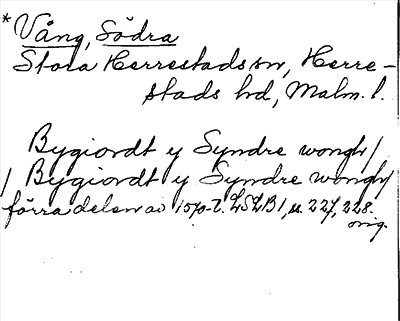 * Vång, Södra
Stora Herrestads sn, Herre-
stads hd, Malm. l.
Bygiordt y Syndre wongh/
/ Bygiordt y Syndre wongh/
förra delen av 1570-t. LSLB1, s. 227, 228.
orig.